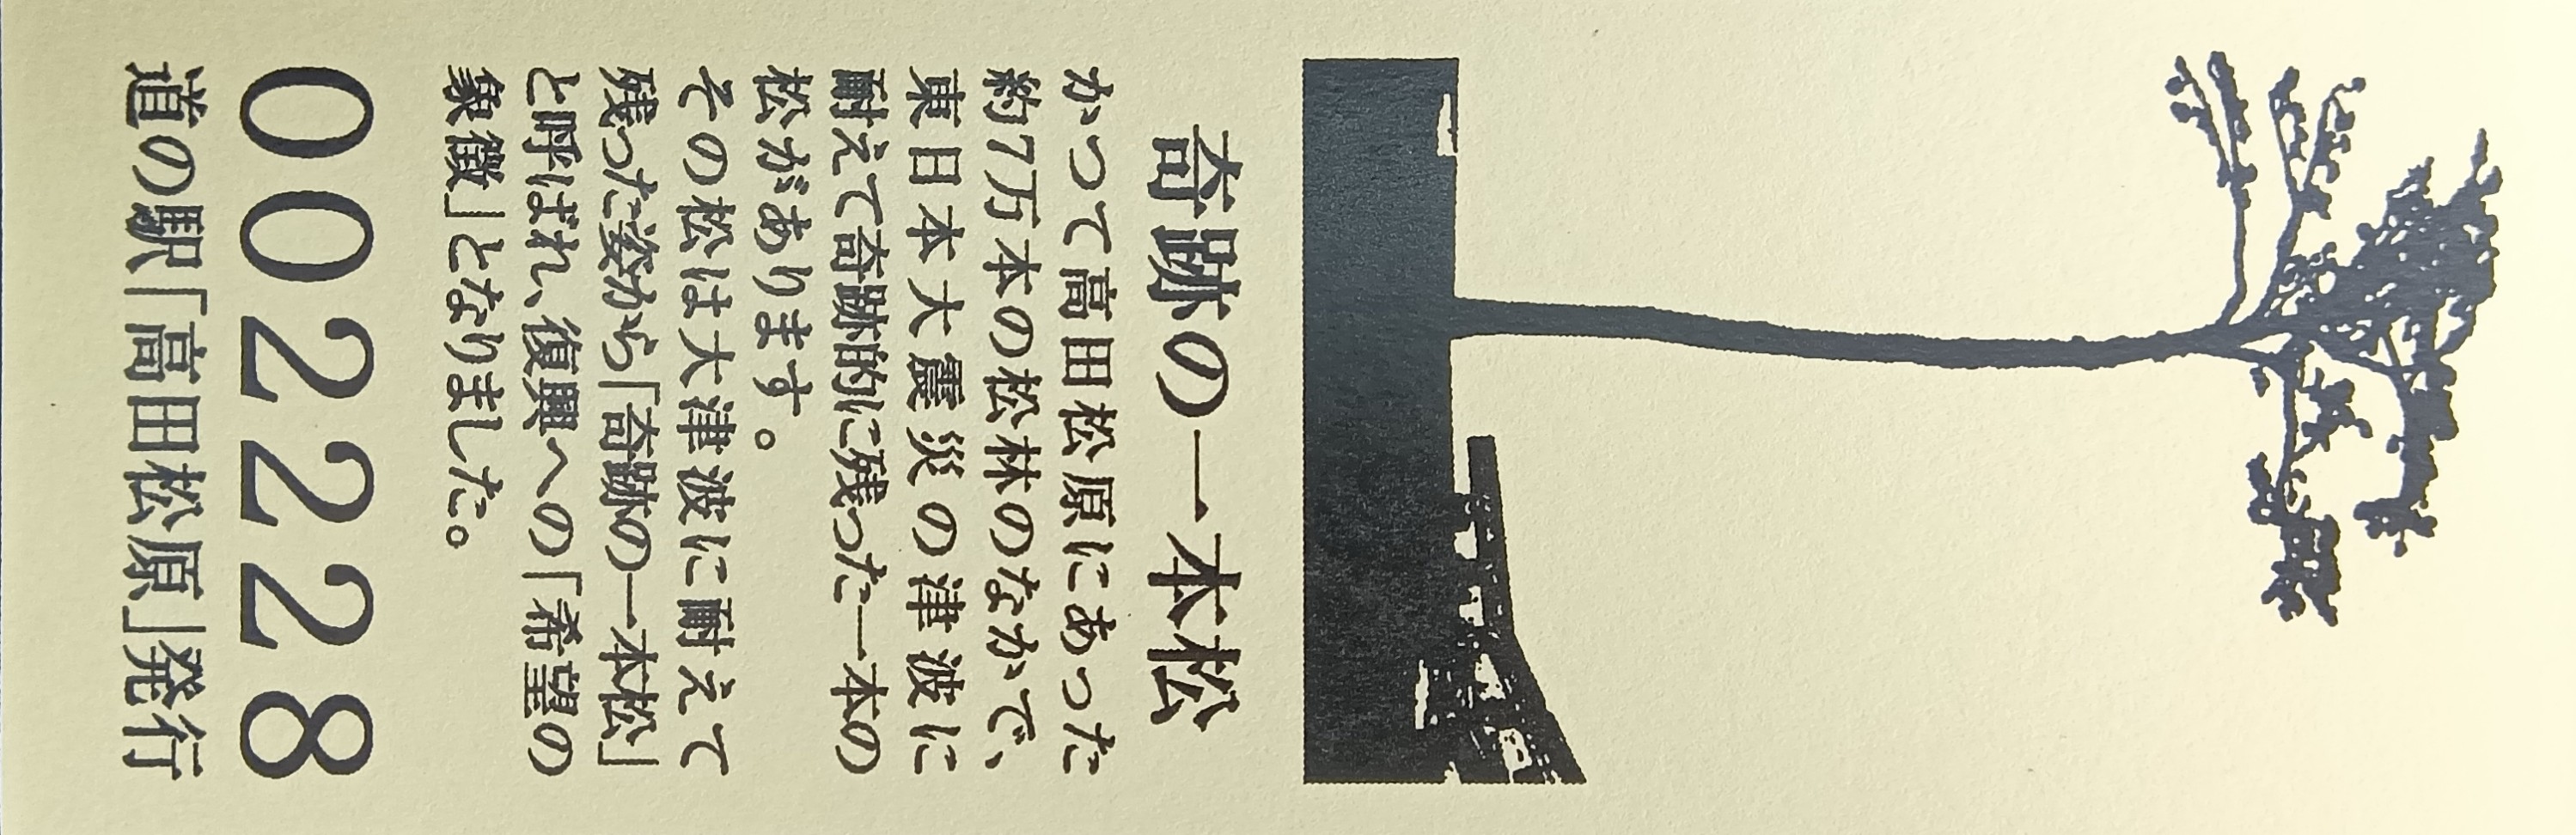 奇跡の一本松
かつて高田松原にあった
約7万本の松林のなかで、
東日本大震災の津波に
耐えて奇跡的に残った一本の
松があります。
その松は大津波に耐えて
残った姿から「奇跡の一本松」
と呼ばれ、復興への「希望の
象徴」となりました。
002228
道の駅「高田松原」発行